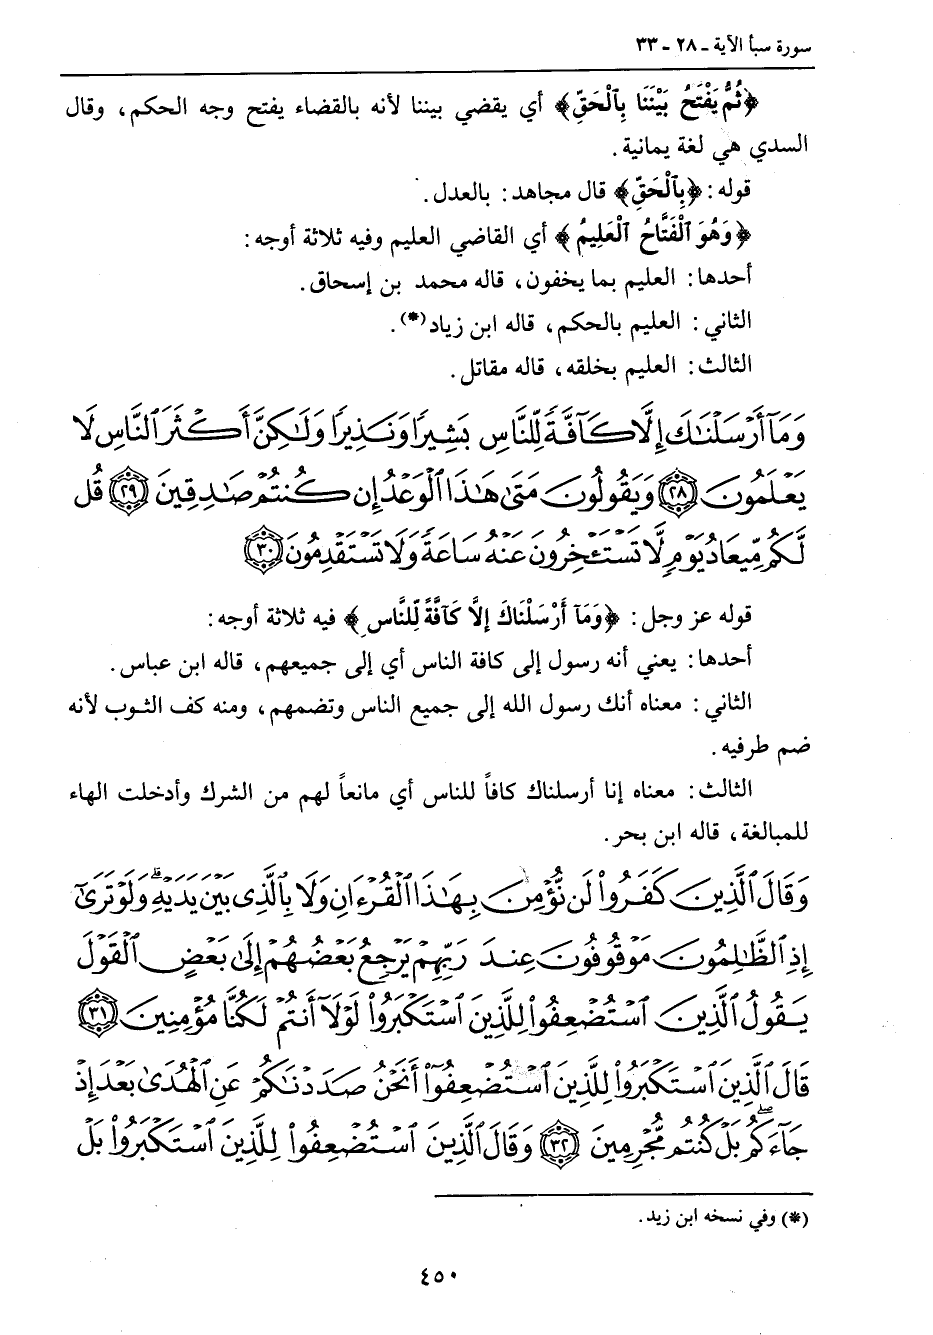 سورة سبأ الآية - ٢٨ - ٣٣
﴿ثُمَّ يَفْتَحُ بَيْنَنَا بِالْحَقِّ﴾ أي يقضي بيننا لأنه بالقضاء يفتح وجه الحكم، وقال
السدي هي لغة يمانية.
قوله: ﴿بِالْحَقِّ﴾ قال مجاهد: بالعدل.
﴿وَهُوَ ٱلْفَتَّاحُ ٱلْعَلِيمُ﴾ أي القاضي العليم وفيه ثلاثة أوجه:
أحدها: العليم بما يخفون، قاله محمد بن إسحاق.
الثاني: العليم بالحكم، قاله ابن زياد(*).
الثالث: العليم بخلقه، قاله مقاتل.
وَمَآ أَرْسَلْنَٰكَ إِلَّا كَآفَّةً لِّلنَّاسِ بَشِيرًا وَنَذِيرًا وَلَٰكِنَّ أَكْثَرَ ٱلنَّاسِ لَا
يَعْلَمُونَ ﴿٢٨﴾ وَيَقُولُونَ مَتَىٰ هَٰذَا ٱلْوَعْدُ إِن كُنتُمْ صَٰدِقِينَ ﴿٢٩﴾ قُل
لَّكُم مِّيعَادُ يَوْمٍ لَّا تَسْتَـْٔخِرُونَ عَنْهُ سَاعَةً وَلَا تَسْتَقْدِمُونَ ﴿٣٠﴾
قوله عز وجل: ﴿وَمَآ أَرْسَلْنَاكَ إِلَّا كَآفَّةً لِّلنَّاسِ﴾ فيه ثلاثة أوجه:
أحدها: يعني أنه رسول إلى كافة الناس أي إلى جميعهم، قاله ابن عباس.
الثاني: معناه أنك رسول الله إلى جميع الناس وتضمهم، ومنه كف الثوب لأنه
ضم طرفيه.
الثالث: معناه إنا أرسلناك كافاً للناس أي مانعاً لهم من الشرك وأدخلت الهاء
للمبالغة، قاله ابن بحر.
وَقَالَ ٱلَّذِينَ كَفَرُوا۟ لَن نُّؤْمِنَ بِهَٰذَا ٱلْقُرْءَانِ وَلَا بِٱلَّذِى بَيْنَ يَدَيْهِ ۗ وَلَوْ تَرَىٰٓ
إِذِ ٱلظَّٰلِمُونَ مَوْقُوفُونَ عِندَ رَبِّهِمْ يَرْجِعُ بَعْضُهُمْ إِلَىٰ بَعْضٍ ٱلْقَوْلَ
يَقُولُ ٱلَّذِينَ ٱسْتُضْعِفُوا۟ لِلَّذِينَ ٱسْتَكْبَرُوا۟ لَوْلَآ أَنتُمْ لَكُنَّا مُؤْمِنِينَ ﴿٣١﴾
قَالَ ٱلَّذِينَ ٱسْتَكْبَرُوا۟ لِلَّذِينَ ٱسْتُضْعِفُوٓا۟ أَنَحْنُ صَدَدْنَٰكُمْ عَنِ ٱلْهُدَىٰ بَعْدَ إِذْ
جَآءَكُم ۖ بَلْ كُنتُم مُّجْرِمِينَ ﴿٣٢﴾ وَقَالَ ٱلَّذِينَ ٱسْتُضْعِفُوا۟ لِلَّذِينَ ٱسْتَكْبَرُوا۟ بَلْ
(*) وفي نسخه ابن زيد.
٤٥٠